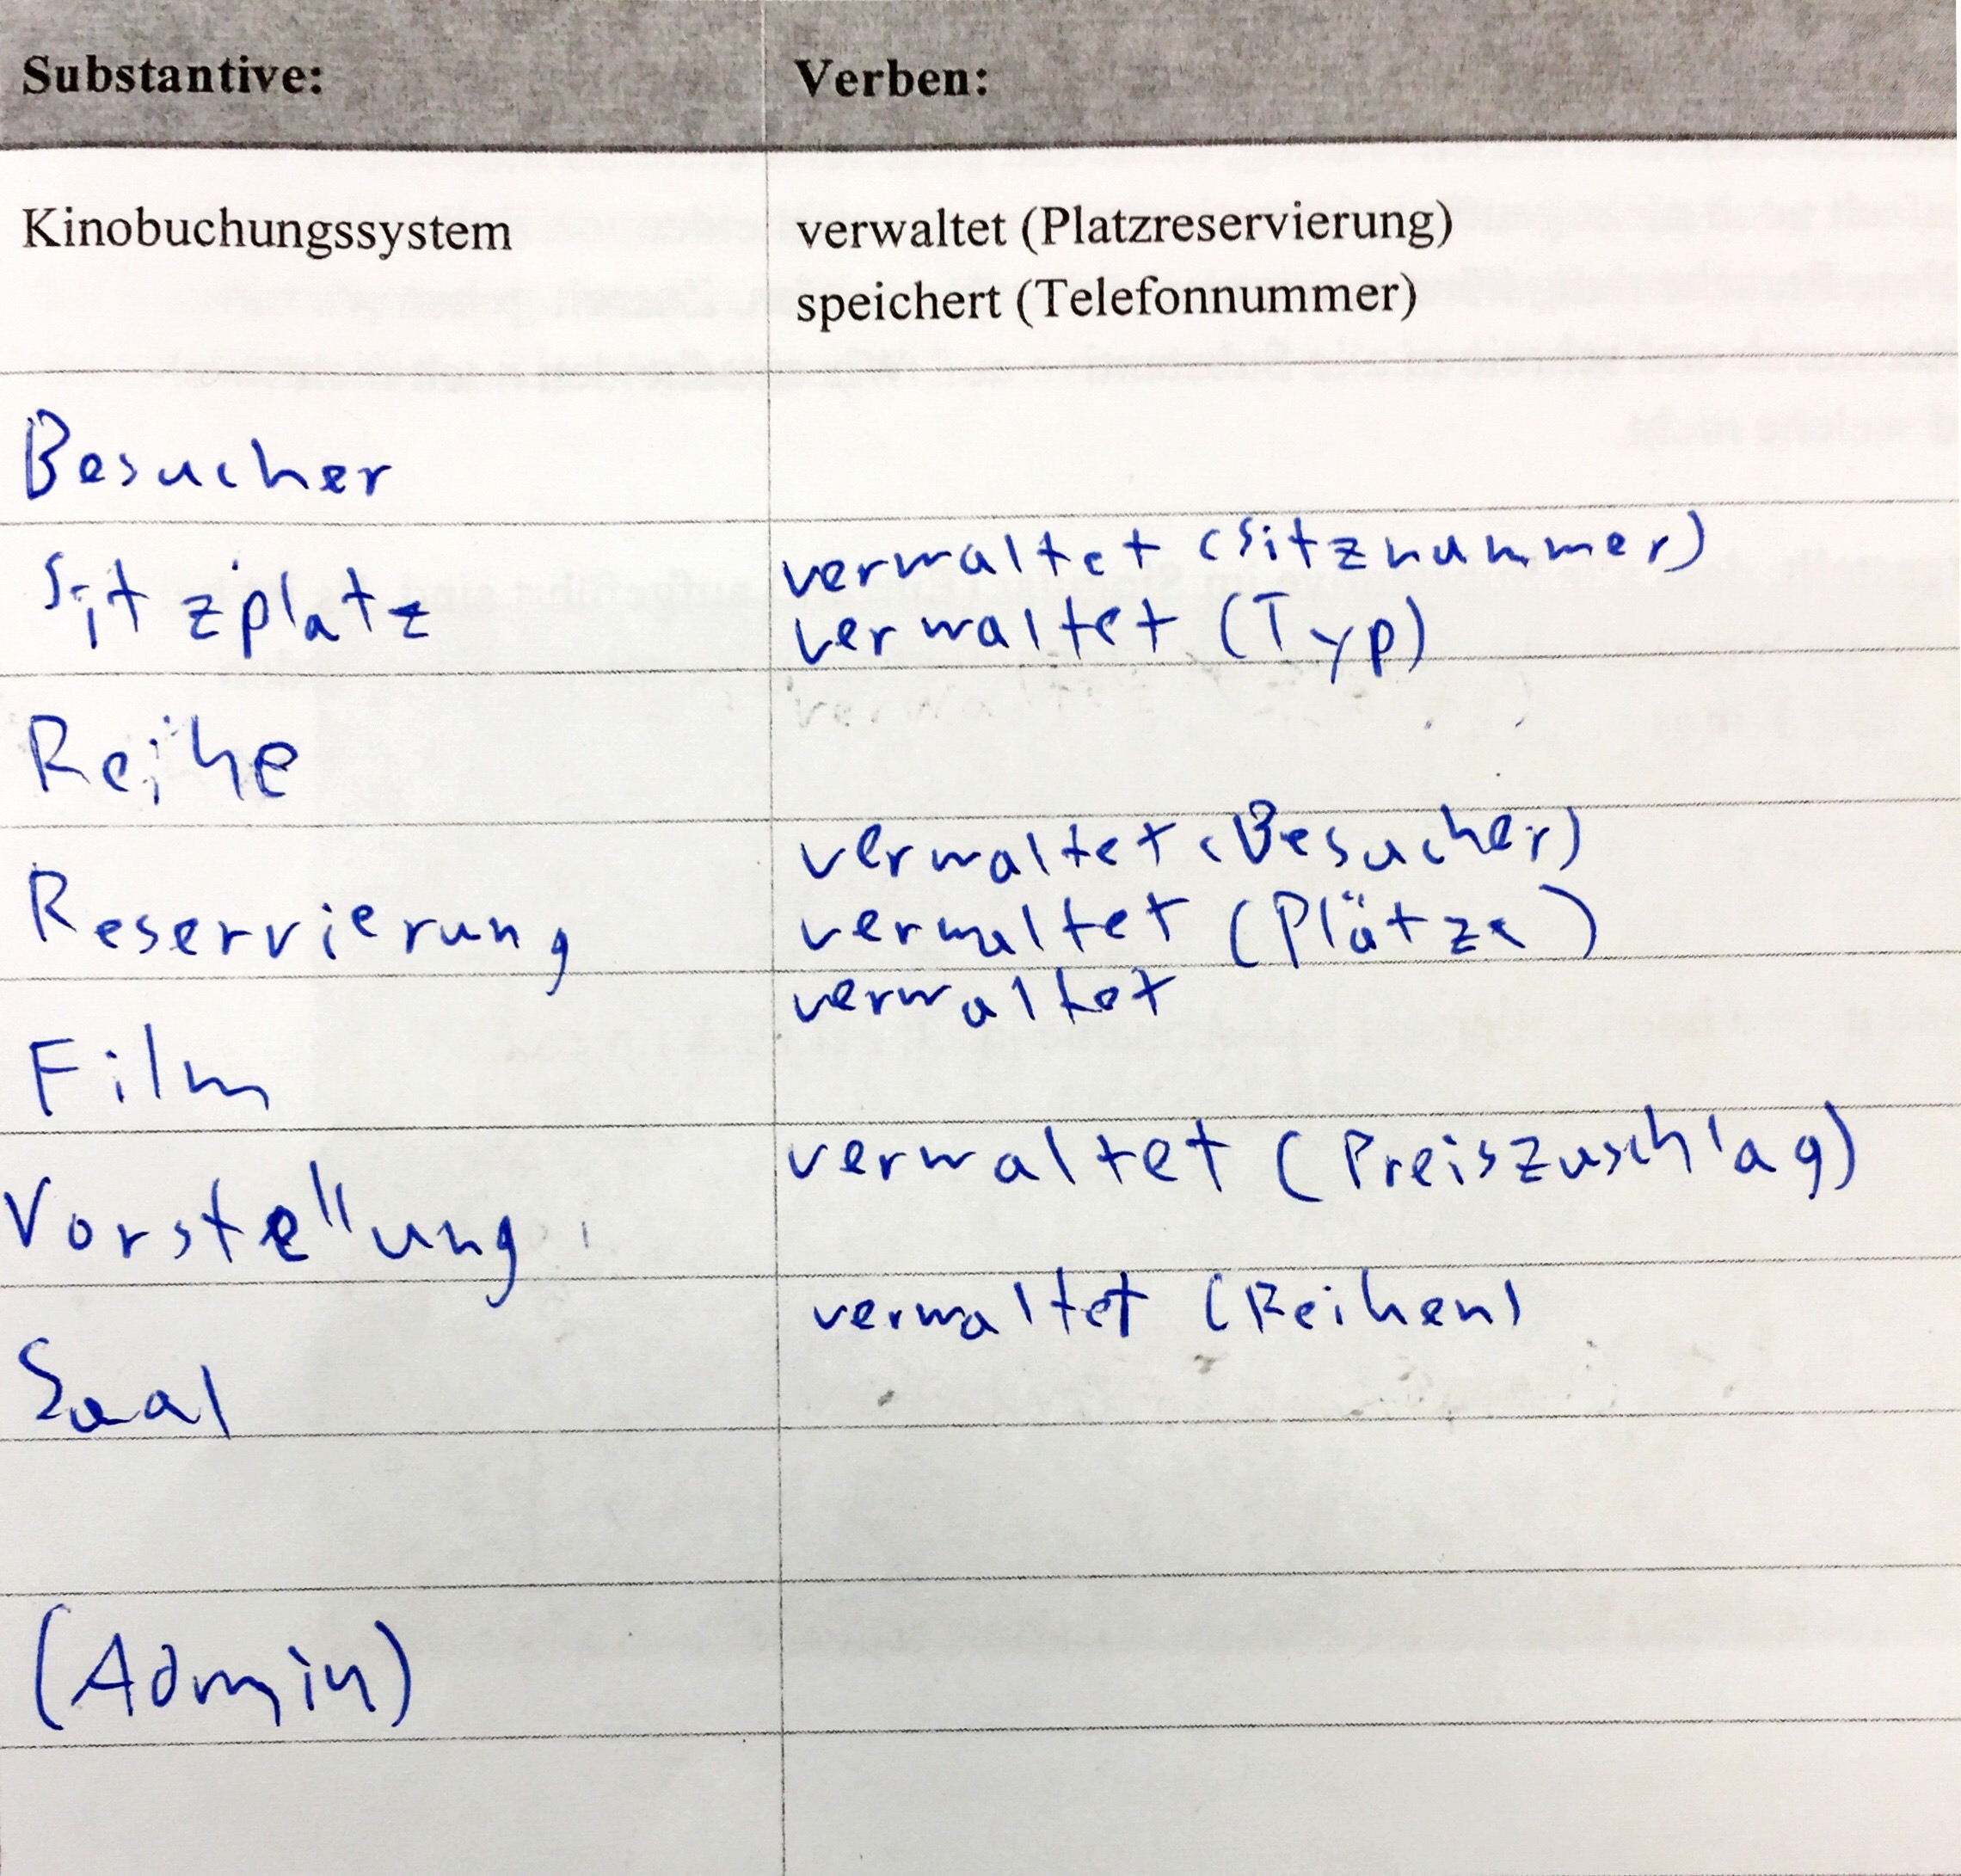 Substantive: Verben:
Kinobuchungssystem verwaltet (Platzreservierung)
speichert (Telefonnummer)
Besucher
Sitzplatz verwaltet (Sitznummer)
verwaltet (Typ)
Reihe
Reservierung verwaltet (Besucher)
verwaltet (Plätze)
Film verwaltet
Vorstellung verwaltet (Preiszuschlag)
Saal verwaltet (Reihen)
(Admin)